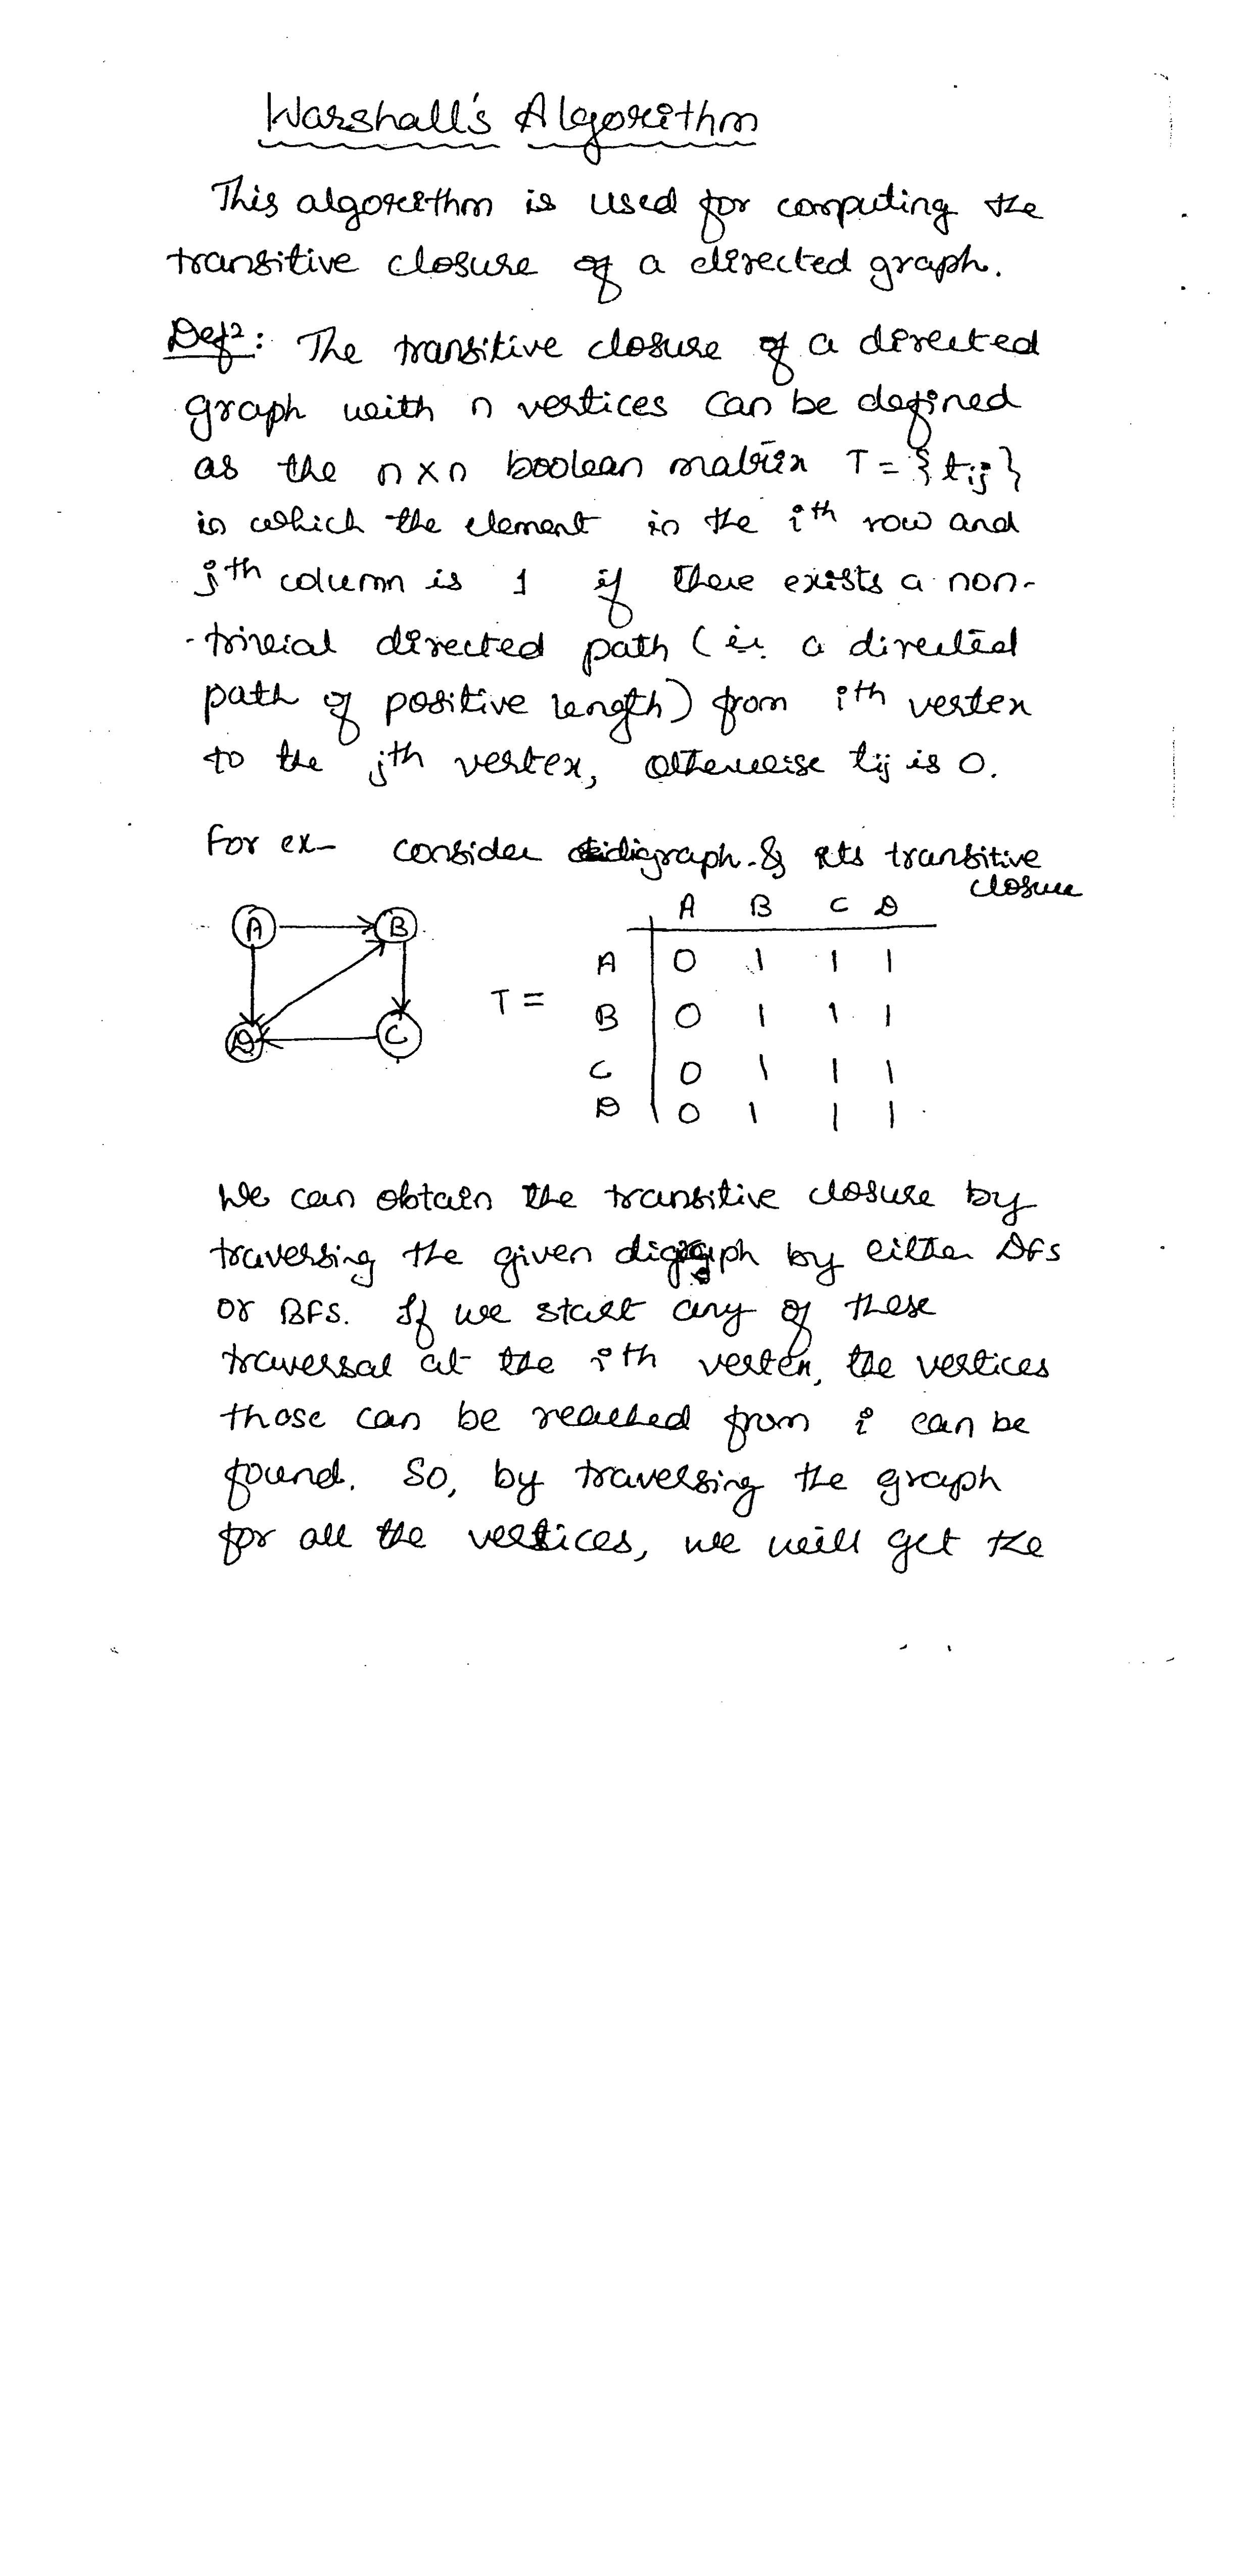 Warshall's Algorithm
This algorithm is used for computing the
transitive closure of a directed graph.
Defⁿ: The transitive closure of a directed
graph with n vertices can be defined
as the n×n boolean matrix T = {tij}
in which the element in the ith row and
jth column is 1 if there exists a non-
-trivial directed path (ie. a directed
path of positive length) from ith vertex
to the jth vertex, otherwise tij is 0.
For ex- consider digraph & its transitive
closure
A B C D
A B
D C
T =
A 0 1 1 1
B 0 1 1 1
C 0 1 1 1
D 0 1 1 1
We can obtain the transitive closure by
traversing the given digraph by either DFS
or BFS. If we start any of these
traversal at the ith vertex, the vertices
those can be reached from i can be
found. So, by traversing the graph
for all the vertices, we will get the